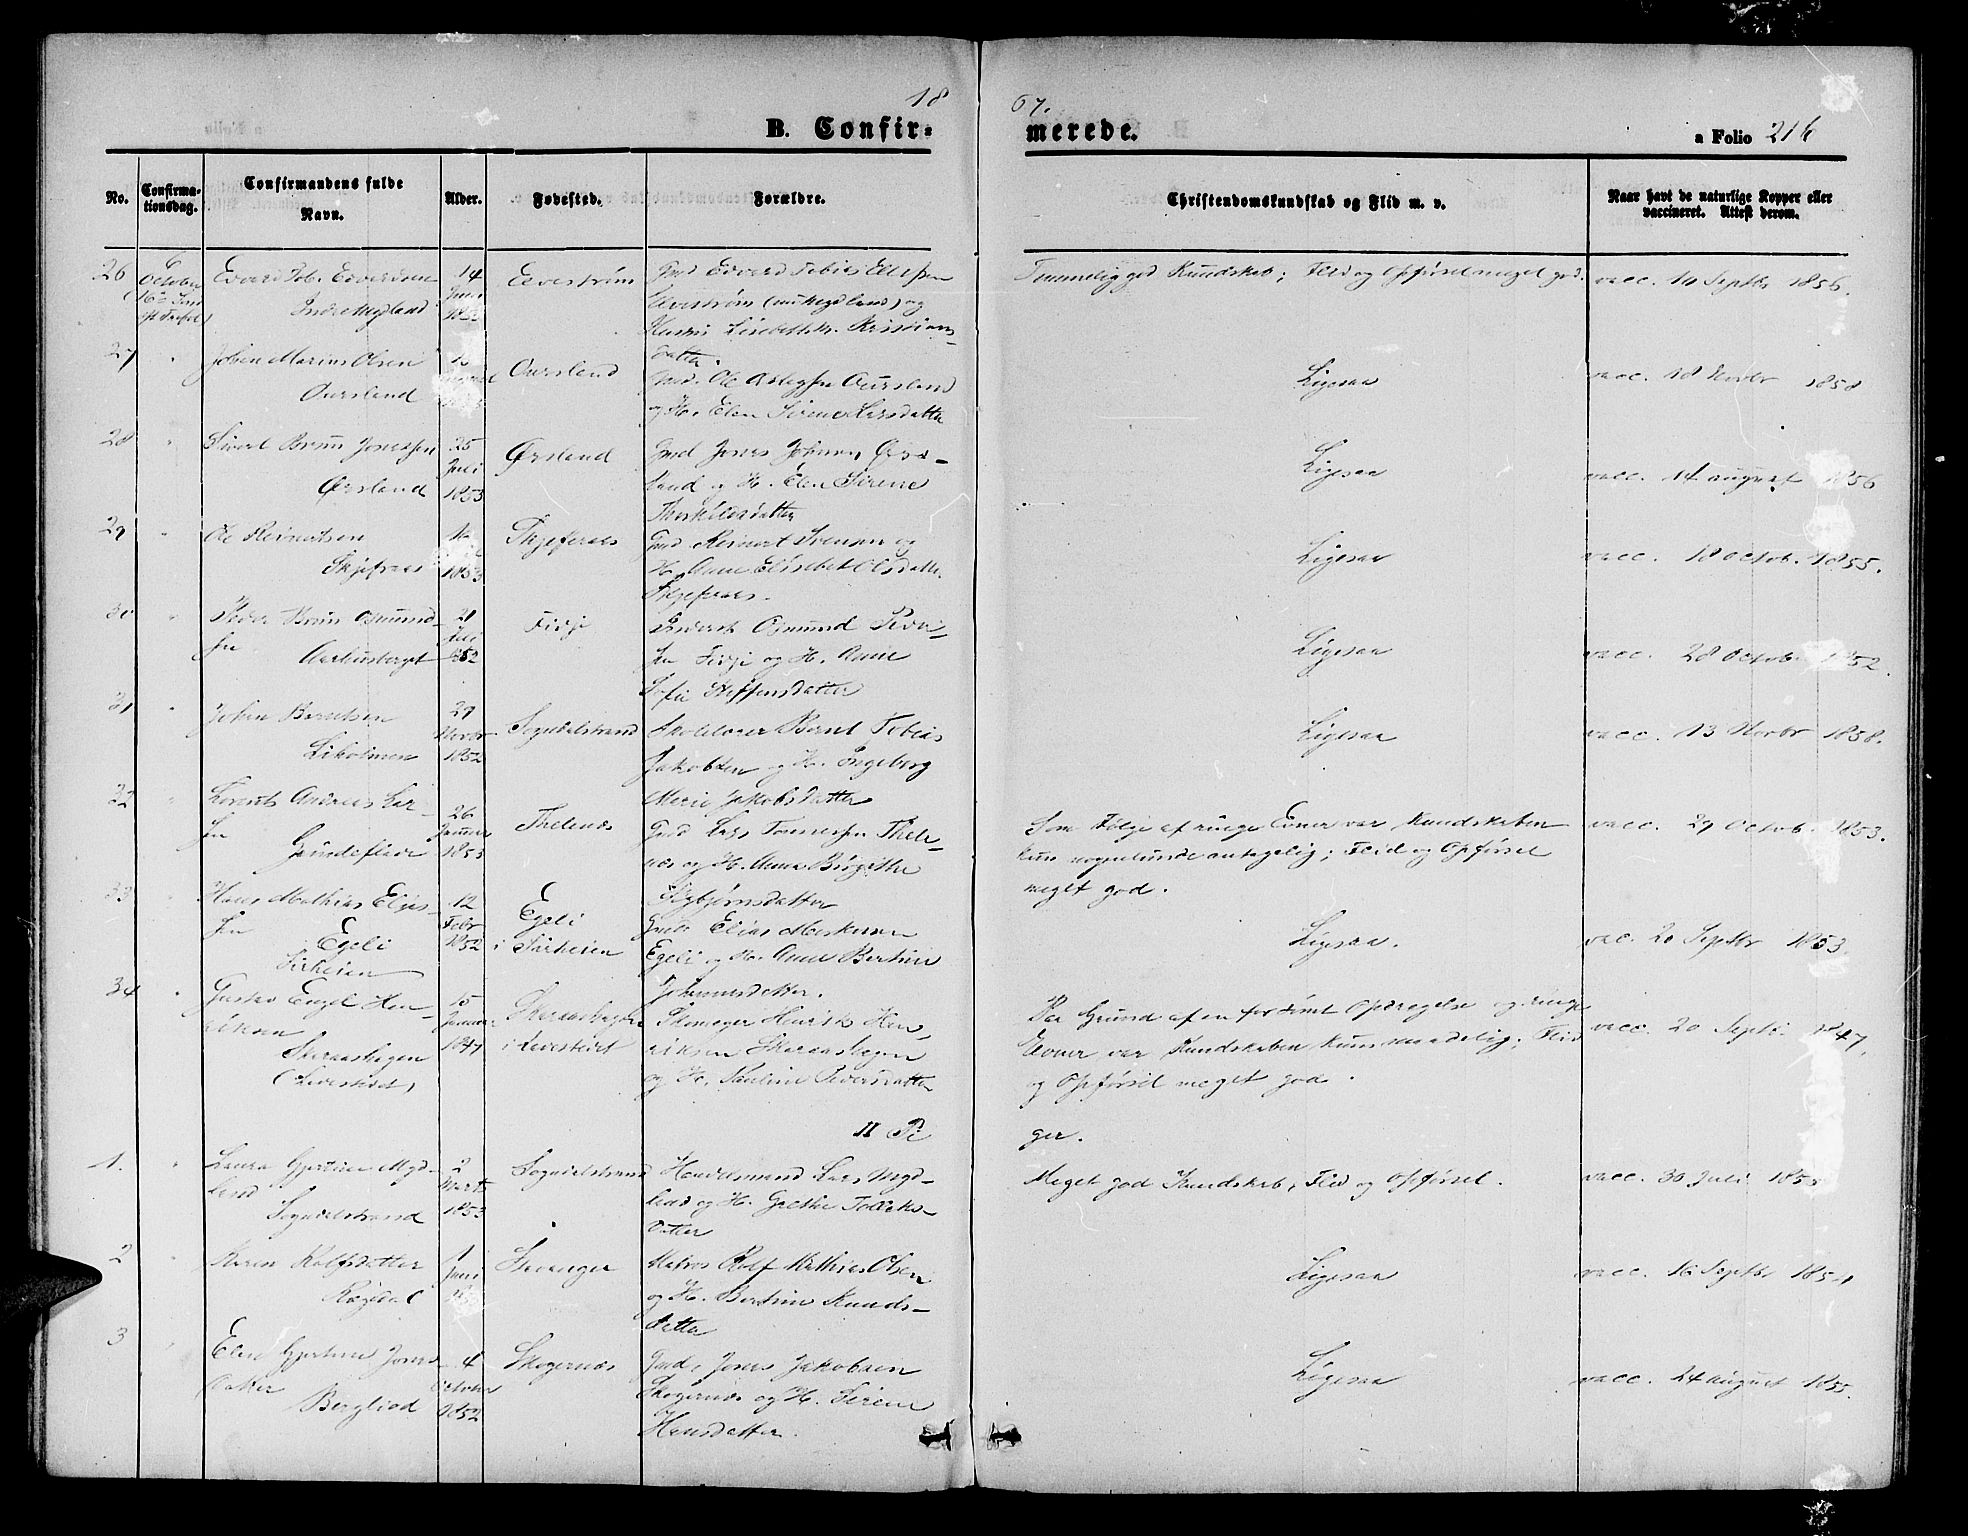 18
67.
B. Confir-
merede.
a Folio 216
No.
Confirma-
tionsdag.
Confirmandens fulde
Navn.
Alder.
Fødested.
Forældre.
Christendomskundskab og Flid m. v.
Naar havt de naturlige Kopper eller
vaccineret. Attest derom.
26
6
October
Edvard Tob. Edvardsen
Indre Mydland
14
Juni
Eevestrøm
Gmd Edvard Tobias
Eevestrøm (nu Mydland) og
Hustru Lisebeth Kristians-
datter.
Temmelig god Kundskab; Flid og Opførsel meget god.
vacc. 10 Septbr 1856.
27
Johan Marius Olsen
Oursland
Oursland
Gmd. Ole Oursland
og H. Elen Sirene Larsdatter
Ligesaa
vacc. 18 Novbr 1858
28
Sivert Bruun Jonassen
Ørsland
25
Juli
1853
Ørsland
Gmd Jonas JohnsenØrs-
land og H. Elen Sirene
Thorkildsdatter
Ligesaa
vacc. 14 august 1856
29
Ole Reinertsen
Skjefraas
1853
Skjefraas
Gmd Reinert Svensen og
H. Anne Elisabet Olsdatter
Skjefraas.
Ligesaa
vacc. 18 Octob. 1855.
30
Peder Bruun Osmund-
sen
21
Juli
1852
Fidje
Osmund Peder-
sen Fidje og H. Anne
Sofie Steffensdatter
Ligesaa
vacc. 28 Octob. 1852.
31
Johan Berntsen
Liholmen
29
Novbr
1852
Sogndalstrand
Skoleholder Bernt Tobias
Jakobsen og H. Ingeborg
Marie Jakobsdatter
Ligesaa
vacc. 13 Novbr 1858.
32
Lorents Andreas Lar-
sen
26
Januar
1853
Thelenæs
Gmd Lars Tønnessen Thele-
næs og H. Anna Birgithe
Som Følge af ringe Evner var Kundskaben
kun nogenlunde antagelig; Flid og Opførsel
meget god.
vacc. 29 Octob. 1853.
33
Hans Mathias Elias-
sen
Egeli
Sirheien
12
Febr
1852
Egeli
i Sirheien
Gmd. Elias
Egeli og H. Anne Bertine
Johannesdatter.
Ligesaa.
vacc. 20 Septbr 1853
34
Gustav Engel Hen-
riksen
Skaraashagen
(Levestedet)
15
Januar
1847
Skaraashagen
i Levestedet
Henrik Hen-
riksen Skaraashagen
og H. Pauline Pedersdatter
Paa Grund af en forsømt Opdragelse og ringe
Evner var Kundskaben kun maadelig; Flid
og Opførsel meget god.
vacc. 20 Septr. 1847.
II Pi
ger.
1.
Laura Gjertine Myd-
land
Sogndalstrand
2
Marts
1853
Sogndalstrand
Handelsmand Lars Myd-
land og H. Grethe Tolleks-
datter
Meget god Kundskab, Flid og Opførsel.
vacc. 30 Juli 1855
2
Karen Rolfsdatter
Røgdal
1
Juni
Stavanger
Matros Rolf Mathias Olsen
og H. Bertine Knuds-
datter
Ligesaa
vacc. 16 Septbr 1854
3
Elen Gjertine Jonas-
datter
Bergliod
4
October
1852
Skogernæs
Gmd. Jonas Jakobsen
Skogernæs og H. Sirene
Hansdatter.
Ligesaa
vacc. 24 august 1855.